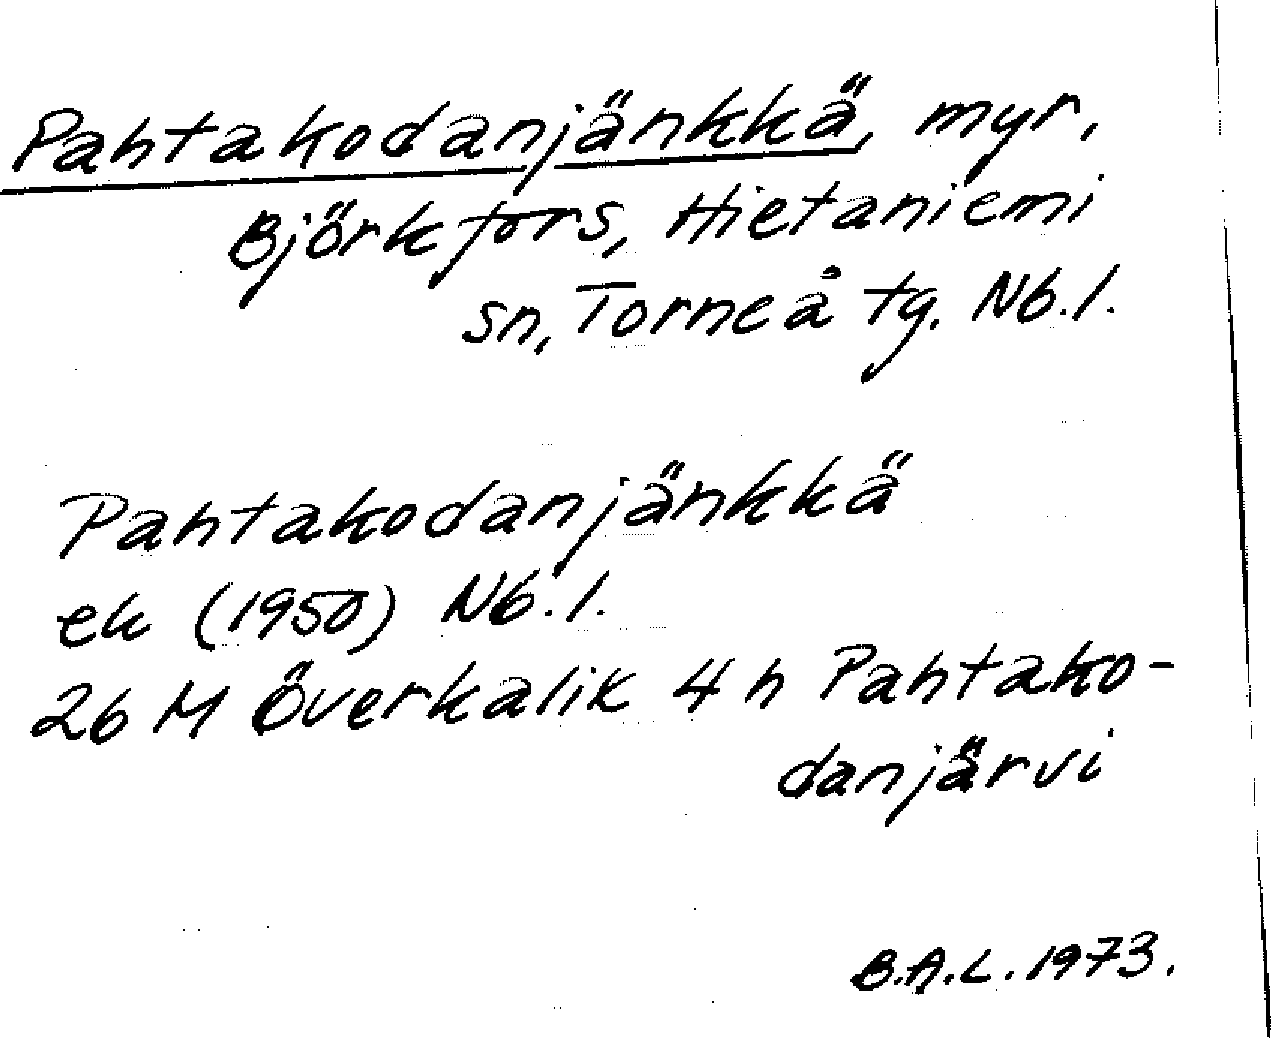 Pahtakodanjänkkä, myr,
Björkfors, Hietaniemi
sn, Torneå tg. Nb.l.
Pahtakodanjänkkä
ek (1950) Nb.l.
26 M Överkalix 4 h Pahtako-
danjärvi
B.A.L. 1973.